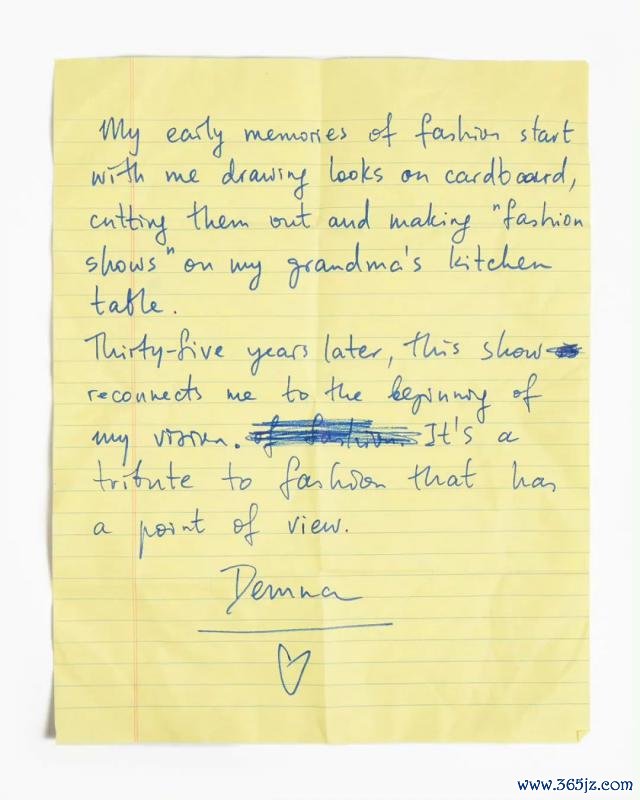 My early memories of fashion start
with me drawing looks on cardboard,
cutting them out and making "fashion
shows" on my grandma's kitchen
table.
Thirty-five years later, this show
reconnects me to the beginning of
my vision. of fashion. It's a
tribute to fashion that has
a point of view.
Demna
www.365jz.com